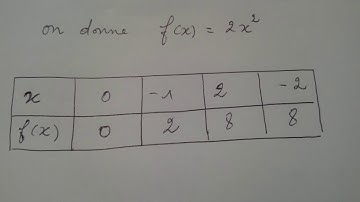 on donne f(x) = 2x²
x 0 -1 2 -2
f(x) 0 2 8 8